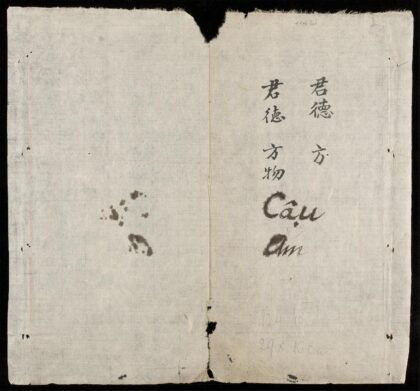 君德 方
君德 方物
Câụ
Am